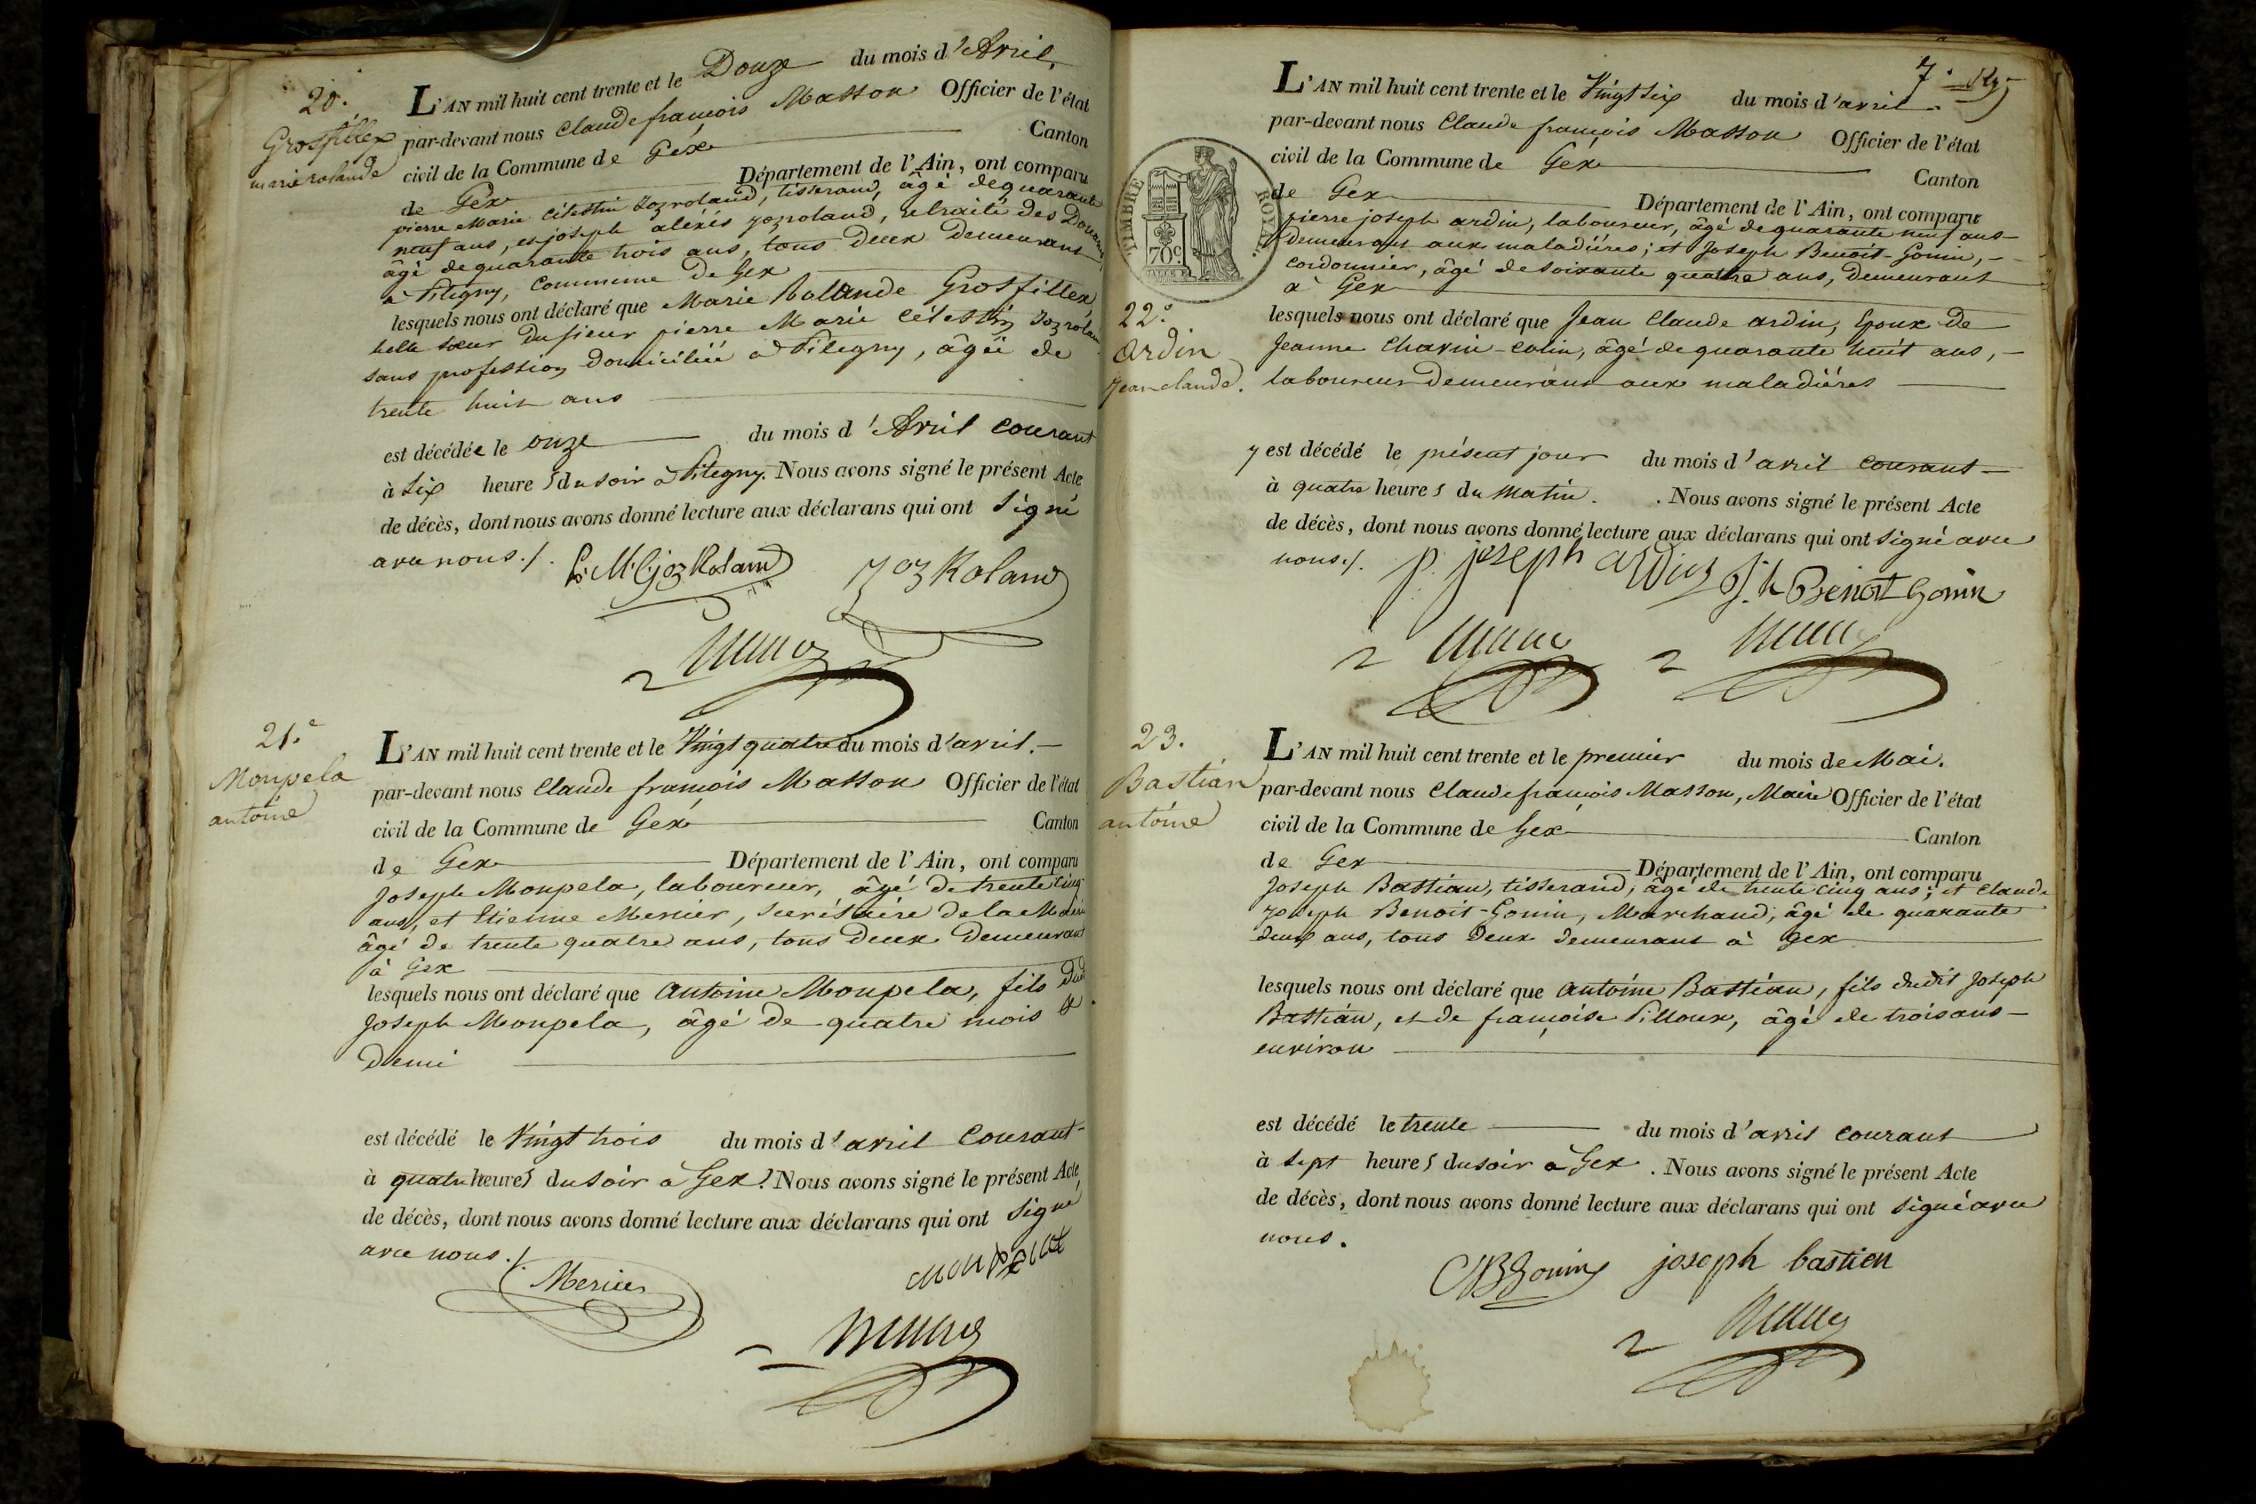 20.
Grosfillex
marie rolande
L'AN mil huit cent trente et le Douze du mois d'Avril,
par-devant nous Claude françois Masson Officier de l'état
civil de la Commune de Gex Canton
de Gex Département de l'Ain, ont comparu
pierre Marie Célestin Jozroland, tisserand, âgé de quarante
neuf ans, et joseph aléxis jozroland, retraité des Douanes,
âgé de quarante trois ans, tous deux demeurans
à Pitegny, Commune de Gex
lesquels nous ont déclaré que Marie Rolande Grosfillex
belle sœur du sieur pierre Marie Célestin Jozroland
sans profession domiciliée à Pitegny, âgée de
trente huit ans
est décédée le onze du mois d'Avril courant
à six heures du soir à Pitegny. Nous avons signé le présent Acte
de décès, dont nous avons donné lecture aux déclarans qui ont signé
avec nous ./.
P. M. C. joz Roland joz Roland
21.e
Monpela
antoine
L'AN mil huit cent trente et le Vingt quatre du mois d'avril.
par-devant nous Claude françois Masson Officier de l'état
civil de la Commune de Gex Canton
de Gex Département de l'Ain, ont comparu
Joseph Monpela, laboureur, âgé de trente cinq
ans, et Etienne Mercier, secrétaire de la Mairie
âgé de trente quatre ans, tous deux demeurant
à Gex
lesquels nous ont déclaré que antoine Monpela, fils dud
Joseph Monpela, âgé de quatre mois &
demi
est décédé le Vingt trois du mois d'avril courant
à quatre heures du soir à Gex. Nous avons signé le présent Acte
de décès, dont nous avons donné lecture aux déclarans qui ont signé
avec nous ./.
Mercier
7.
L'AN mil huit cent trente et le Vingt six du mois d'avril
par-devant nous Claude françois Masson Officier de l'état
civil de la Commune de Gex Canton
de Gex Département de l'Ain, ont comparu
TIMBRE ROYAL
70c
pierre joseph ardin, laboureur, âgé de quarante neuf ans
demeurant aux maladières; et Joseph Benoit-Gonin,
cordonnier, âgé de soixante quatre ans, demeurant
à Gex
22.e
Ardin
Jean claude.
lesquels nous ont déclaré que Jean Claude ardin, Epoux de
Jeanne Charin-colin, âgé de quarante huit ans,
laboureur demeurant aux maladières
y est décédé le présent jour du mois d'avril courant
à quatre heures du matin. Nous avons signé le présent Acte
de décès, dont nous avons donné lecture aux déclarans qui ont signé avec
nous ./.
p. joseph ardin Benoit Gonin
23.
Bastian
antoine
L'AN mil huit cent trente et le premier du mois de Mai.
par-devant nous Claude françois Masson, Maire Officier de l'état
civil de la Commune de Gex Canton
de Gex Département de l'Ain, ont comparu
Joseph Bastian, tisserand, âgé de trente cinq ans; et Claude
Joseph Benoit-Gonin, Marchand, âgé de quarante
deux ans, tous deux demeurant à Gex
lesquels nous ont déclaré que antoine Bastian, fils dudit Joseph
Bastian, et de françoise Pilloux, âgé de trois ans
environ
est décédé le trente du mois d'avril courant
à sept heures du soir à Gex. Nous avons signé le présent Acte
de décès, dont nous avons donné lecture aux déclarans qui ont signé avec
nous.
joseph bastien